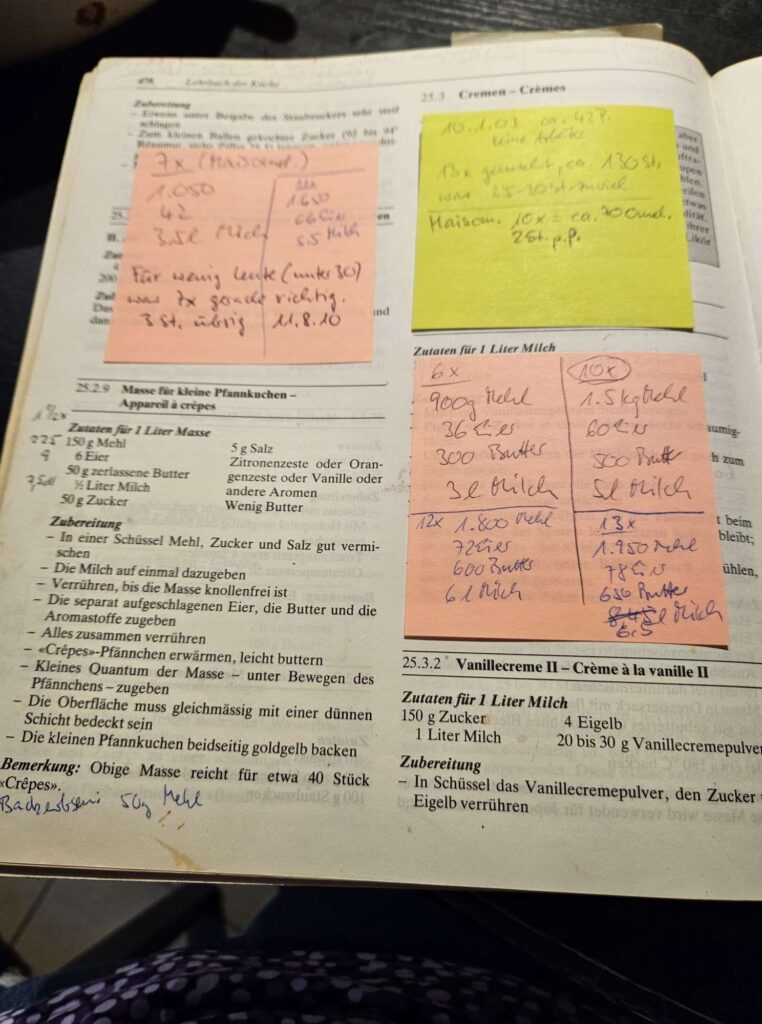 478 Lehrbuch der Küche
Zubereitung
– Eiweiss unter Beigabe des Staubzuckers sehr steif
schlagen
– Zum kleinen Ballen gekochter Zucker
7x (Maisomel.)
1.050
42
3.5l Milch
11x
1.650
66 Eier
5.5 Milch
Für wenig Leute (unter 30)
war 7x gerade richtig.
3 St. übrig 11.8.10
25.2.9 Masse für kleine Pfannkuchen –
Appareil à crêpes
1 1/2x
Zutaten für 1 Liter Masse
225 150 g Mehl
9 6 Eier
50 g zerlassene Butter
7,5dl ½ Liter Milch
50 g Zucker
5 g Salz
Zitronenzeste oder Oran-
genzeste oder Vanille oder
andere Aromen
Wenig Butter
Zubereitung
– In einer Schüssel Mehl, Zucker und Salz gut vermi-
schen
– Die Milch auf einmal dazugeben
– Verrühren, bis die Masse knollenfrei ist
– Die separat aufgeschlagenen Eier, die Butter und die
Aromastoffe zugeben
– Alles zusammen verrühren
– «Crêpes»-Pfännchen erwärmen, leicht buttern
– Kleines Quantum der Masse – unter Bewegen des
Pfännchens – zugeben
– Die Oberfläche muss gleichmässig mit einer dünnen
Schicht bedeckt sein
– Die kleinen Pfannkuchen beidseitig goldgelb backen
Bemerkung: Obige Masse reicht für etwa 40 Stück
«Crêpes».
50g Mehl
25.3 Cremen – Crèmes
10.1.03 ca. 42P.
keine Arbeiter
13x gemacht, ca. 130 St.
war 25-30 St. zuviel
Maisom. 10x = ca. 100
2 St. p.P.
Zutaten für 1 Liter Milch
6x
900g Mehl
36 Eier
300 Butter
3l Milch
10x
1.5kg Mehl
60 Eier
500 Butter
5l Milch
12x 1.800 Mehl
72 Eier
600 Butter
6l Milch
13x
1.950 Mehl
78 Eier
650 Butter
l Milch
6.5
25.3.2 Vanillecreme II – Crème à la vanille II
Zutaten für 1 Liter Milch
150 g Zucker
1 Liter Milch
4 Eigelb
20 bis 30 g Vanillecremepulver
Zubereitung
– In Schüssel das Vanillecremepulver, den Zucker
Eigelb verrühren